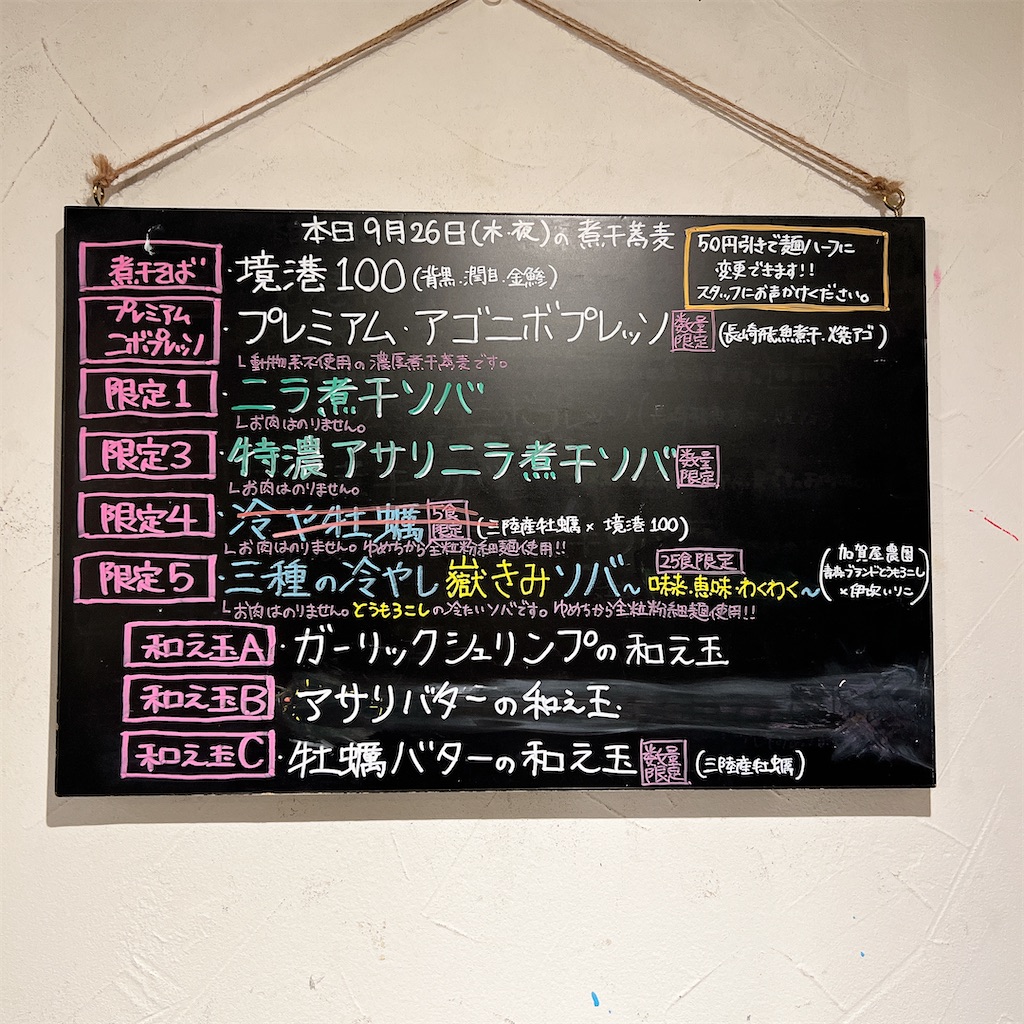 本日9月26日(木・夜)の煮干蕎麦
50円引きで麺ハーフに
変更できます!!
スタッフにお声かけください。
煮干そば ・境港100(背黒.潤目.金鯵)
プレミアム
ニボプレッソ ・プレミアム・アゴニボプレッソ 数量限定 (長崎飛魚煮干・焼アゴ)
└動物系不使用の濃厚煮干蕎麦です。
限定1 ・ニラ煮干ソバ
└お肉はのりません。
限定3 ・特濃アサリニラ煮干ソバ 数量限定
└お肉はのりません。
限定4 ・冷や牡蠣 5食限定 (三陸産牡蠣×境港100)
└お肉はのりません。ゆめちから全粒粉細麺使用!!
25食限定
限定5 ・三種の冷やし嶽きみソバ〜味来・恵味・わくわく〜
(加賀屋農園
青森ブランドとうもろこし
×伊吹いりこ)
└お肉はのりません。とうもろこしの冷たいソバです。ゆめちから全粒粉細麺使用!!
和え玉A ・ガーリックシュリンプの和え玉
和え玉B ・アサリバターの和え玉.
和え玉C ・牡蠣バターの和え玉 数量限定 (三陸産牡蠣)